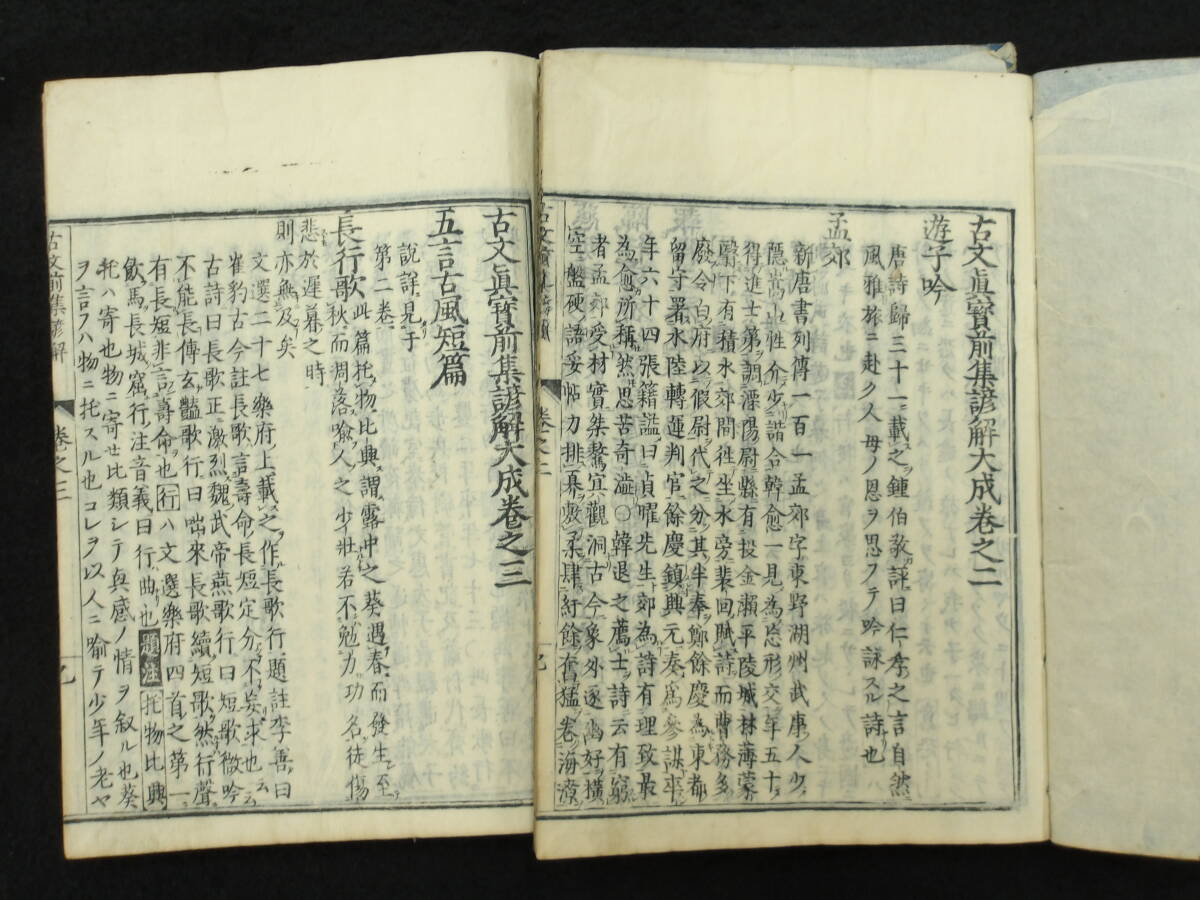 古文眞寳前集諺解大成卷之二
遊子吟
唐詩歸三十一ニ載之鍾伯敬評曰仁孝之言自然
風雅旅ニ赴ク人母ノ恩ヲ思フテ吟詠スル詩也
孟郊
新唐書列傳一百一孟郊字東野湖州武康人少
隱嵩山性介少諧合韓愈一見為忘形交年五十
得進士第調溧陽尉縣有投金瀨平陵城林薄蒙
翳下有積水郊間徃坐水旁裴回賦詩而曹務多
廢令白府以假尉代之分其半奉鄭餘慶為東都
留守署水陸轉運判官餘慶鎮興元奏為參謀卒
年六十四張籍謚曰貞曜先生郊為詩有理致最
為愈所稱然思苦奇澁〇韓退之薦士詩云有窮
者孟郊受材實桀驁冥觀洞古今象外逐幽好橫
空盤硬語妥帖力排奡敷柔肆紆餘奮猛卷海潦
卷之二
古文眞寳前集諺解大成卷之三
五言古風短篇
說詳見于
第二卷
長行歌
此篇托物比興謂露中之葵遇春而發生至
秋而凋落喻人之少壯若不勉力功名徒傷
悲於遲暮之時
則亦無及矣
文選二十七樂府上載之作長歌行題註李善曰
崔豹古今註長歌言壽命長短定分不妄求也云云
古詩曰長歌正激烈魏武帝燕歌行曰短歌微吟
不能長傅玄豔歌行曰咄來長歌續短歌然行聲
有長短非言壽命也行ハ文選樂府四首之第一
飲馬長城窟行注音義曰行曲也題注托物比興
托ハ寄也物ニ寄セ比類シテ眞感ノ情ヲ叙ル也葵
ヲ言フハ物ニ托スル也コレヲ以人ニ喻テ少年ノ老ヤ
古文前集諺解
卷之三